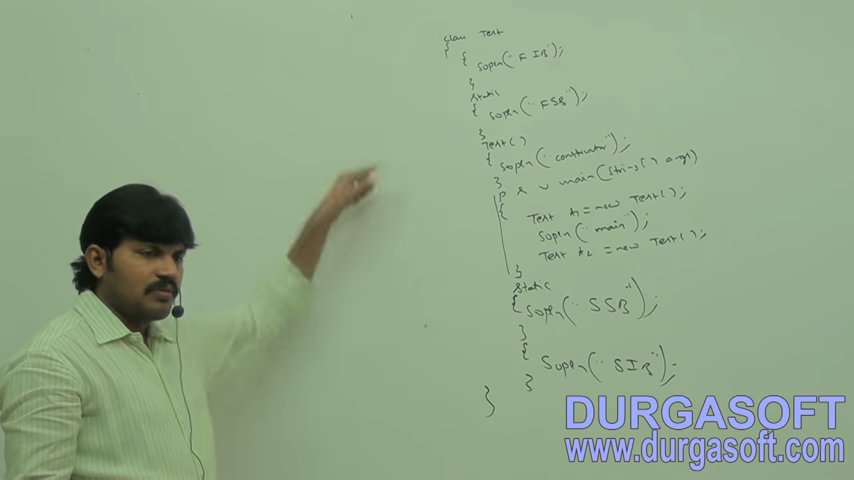 class Test
{ { Sopln("FIB");
}
static
{ Sopln("FSB");
}
Test()
{ Sopln("constructor");
}
p s v main(String[] args)
{
Test t1 = new Test();
Sopln("main");
Test t2 = new Test();
}
static
{ Sopln("SSB");
}
{ Sopln("SIB");
}
}
DURGASOFT
www.durgasoft.com